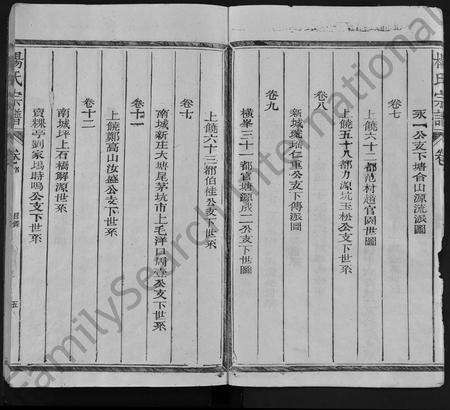 楊氏宗譜
永一公支下塘倉山源流派圖
卷七
上饒六十二都范村趙官岡世圖
上饒五十八都力源坑玉松公支下世系
卷八
新城 仁重公支下傳派圖
卷九
橫峯三十一都官塘源 二公支下世圖
上饒六十三都伯桂公支下世系
卷十
南城新庄大塘尾茅坑市上毛洋口周壹公支下世系
卷十一
上饒鄭高山汝盛公支下世系
卷十二
南城坪上石橋解源世系
賣粿亭劉家塢時鳴公支下世系
楊氏宗譜
卷首
目錄
五
FamilySearch International